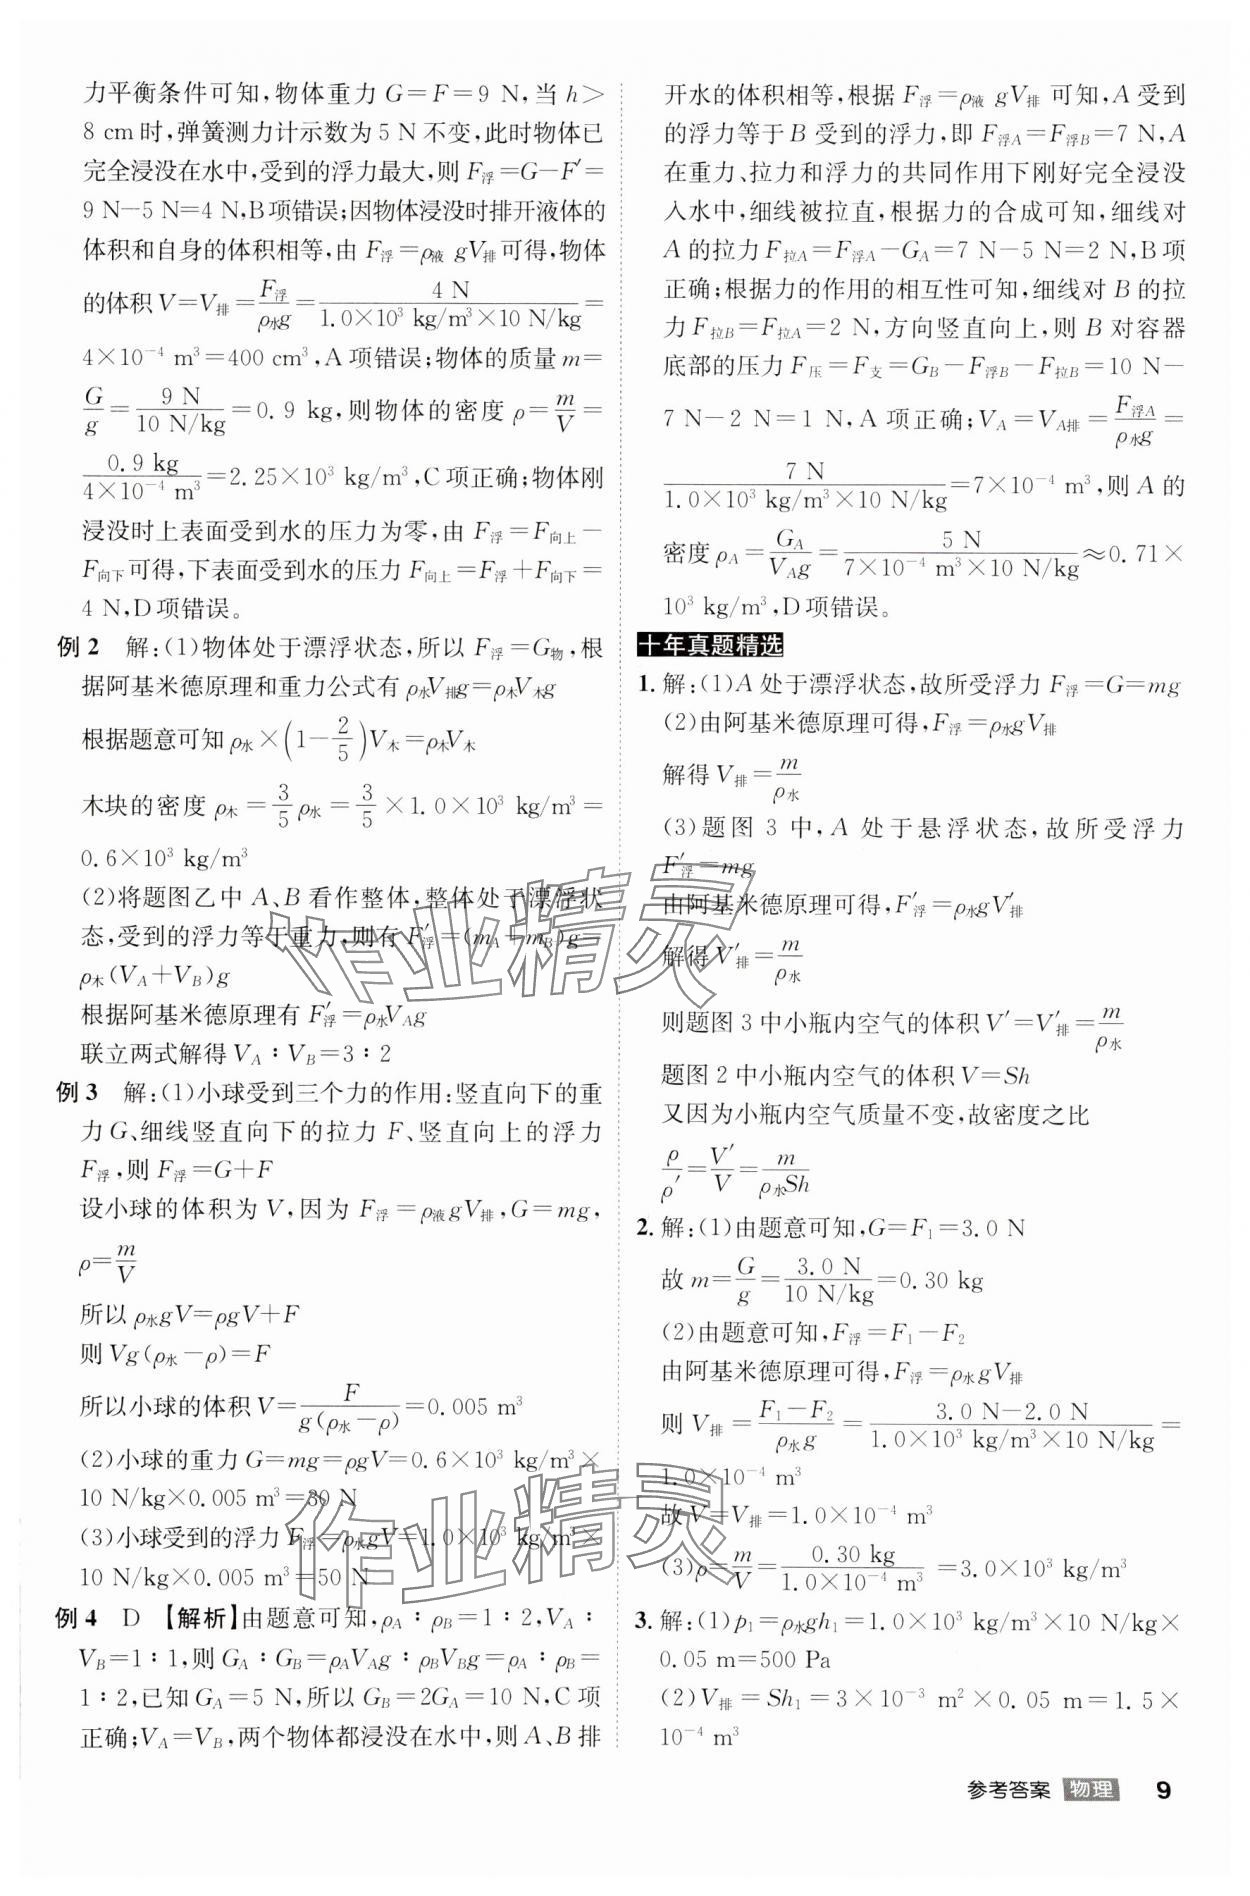 力平衡条件可知,物体重力 G=F=9 N,当 h>
8 cm时,弹簧测力计示数为5 N不变,此时物体已
完全浸没在水中,受到的浮力最大,则 F浮=G-F′=
9 N-5 N=4 N,B项错误;因物体浸没时排开液体的
体积和自身的体积相等,由 F浮=ρ液 gV排可得,物体
的体积 V=V排=F浮/ρ水g=4 N/(1.0×10³ kg/m³×10 N/kg)=
4×10⁻⁴ m³=400 cm³,A项错误;物体的质量 m=
G/g=9 N/(10 N/kg)=0.9 kg,则物体的密度 ρ=m/V=
0.9 kg/(4×10⁻⁴ m³)=2.25×10³ kg/m³,C项正确;物体刚
浸没时上表面受到水的压力为零,由 F浮=F向上-
F向下可得,下表面受到水的压力 F向上=F浮+F向下=
4 N,D项错误。
例2 解:(1)物体处于漂浮状态,所以 F浮=G物,根
据阿基米德原理和重力公式有 ρ水V排g=ρ木V木g
根据题意可知 ρ水×(1-2/5)V木=ρ木V木
木块的密度 ρ木=3/5ρ水=3/5×1.0×10³ kg/m³=
0.6×10³ kg/m³
(2)将题图乙中 A、B 看作整体,整体处于漂浮状
态,受到的浮力等于重力,则有 F′浮=(mA+mB)g=
ρ木(VA+VB)g
根据阿基米德原理有 F′浮=ρ水VAg
联立两式解得 VA∶VB=3∶2
例3 解:(1)小球受到三个力的作用:竖直向下的重
力 G、细线竖直向下的拉力 F、竖直向上的浮力
F浮,则 F浮=G+F
设小球的体积为 V,因为 F浮=ρ液gV排,G=mg,
ρ=m/V
所以 ρ水gV=ρgV+F
则 Vg(ρ水-ρ)=F
所以小球的体积 V=F/(g(ρ水-ρ))=0.005 m³
(2)小球的重力 G=mg=ρgV=0.6×10³ kg/m³×
10 N/kg×0.005 m³=30 N
(3)小球受到的浮力 F浮=ρ水gV=1.0×10³ kg/m³×
10 N/kg×0.005 m³=50 N
例4 D 【解析】由题意可知,ρA∶ρB=1∶2,VA∶
VB=1∶1,则 GA∶GB=ρAVAg∶ρBVBg=ρA∶ρB=
1∶2,已知 GA=5 N,所以 GB=2GA=10 N,C项
正确;VA=VB,两个物体都浸没在水中,则 A、B 排
开水的体积相等,根据 F浮=ρ液 gV排 可知,A 受到
的浮力等于 B 受到的浮力,即 F浮A=F浮B=7 N,A
在重力、拉力和浮力的共同作用下刚好完全浸没
入水中,细线被拉直,根据力的合成可知,细线对
A 的拉力 F拉A=F浮A-GA=7 N-5 N=2 N,B项
正确;根据力的作用的相互性可知,细线对 B 的拉
力 F拉B=F拉A=2 N,方向竖直向上,则 B 对容器
底部的压力 F压=F支=GB-F浮B-F拉B=10 N-
7 N-2 N=1 N,A项正确;VA=VA排=F浮A/ρ水g=
7 N/(1.0×10³ kg/m³×10 N/kg)=7×10⁻⁴ m³,则 A 的
密度 ρA=GA/VAg=5 N/(7×10⁻⁴ m³×10 N/kg)≈0.71×
10³ kg/m³,D项错误。
十年真题精选
1. 解:(1)A 处于漂浮状态,故所受浮力 F浮=G=mg
(2)由阿基米德原理可得,F浮=ρ水gV排
解得 V排=m/ρ水
(3)题图3中,A 处于悬浮状态,故所受浮力
F′浮=mg
由阿基米德原理可得,F′浮=ρ水gV′排
解得 V′排=m/ρ水
则题图3中小瓶内空气的体积 V′=V′排=m/ρ水
题图2中小瓶内空气的体积 V=Sh
又因为小瓶内空气质量不变,故密度之比
ρ/ρ′=V′/V=m/ρ水Sh
2. 解:(1)由题意可知,G=F₁=3.0 N
故 m=G/g=3.0 N/(10 N/kg)=0.30 kg
(2)由题意可知,F浮=F₁-F₂
由阿基米德原理可得,F浮=ρ水gV排
则 V排=(F₁-F₂)/ρ水g=(3.0 N-2.0 N)/(1.0×10³ kg/m³×10 N/kg)=
1.0×10⁻⁴ m³
故 V=V排=1.0×10⁻⁴ m³
(3)ρ=m/V=0.30 kg/(1.0×10⁻⁴ m³)=3.0×10³ kg/m³
3. 解:(1)p₁=ρ水gh₁=1.0×10³ kg/m³×10 N/kg×
0.05 m=500 Pa
(2)V排=Sh₁=3×10⁻³ m²×0.05 m=1.5×
10⁻⁴ m³
作业精灵
作业精灵
参考答案 物理 9